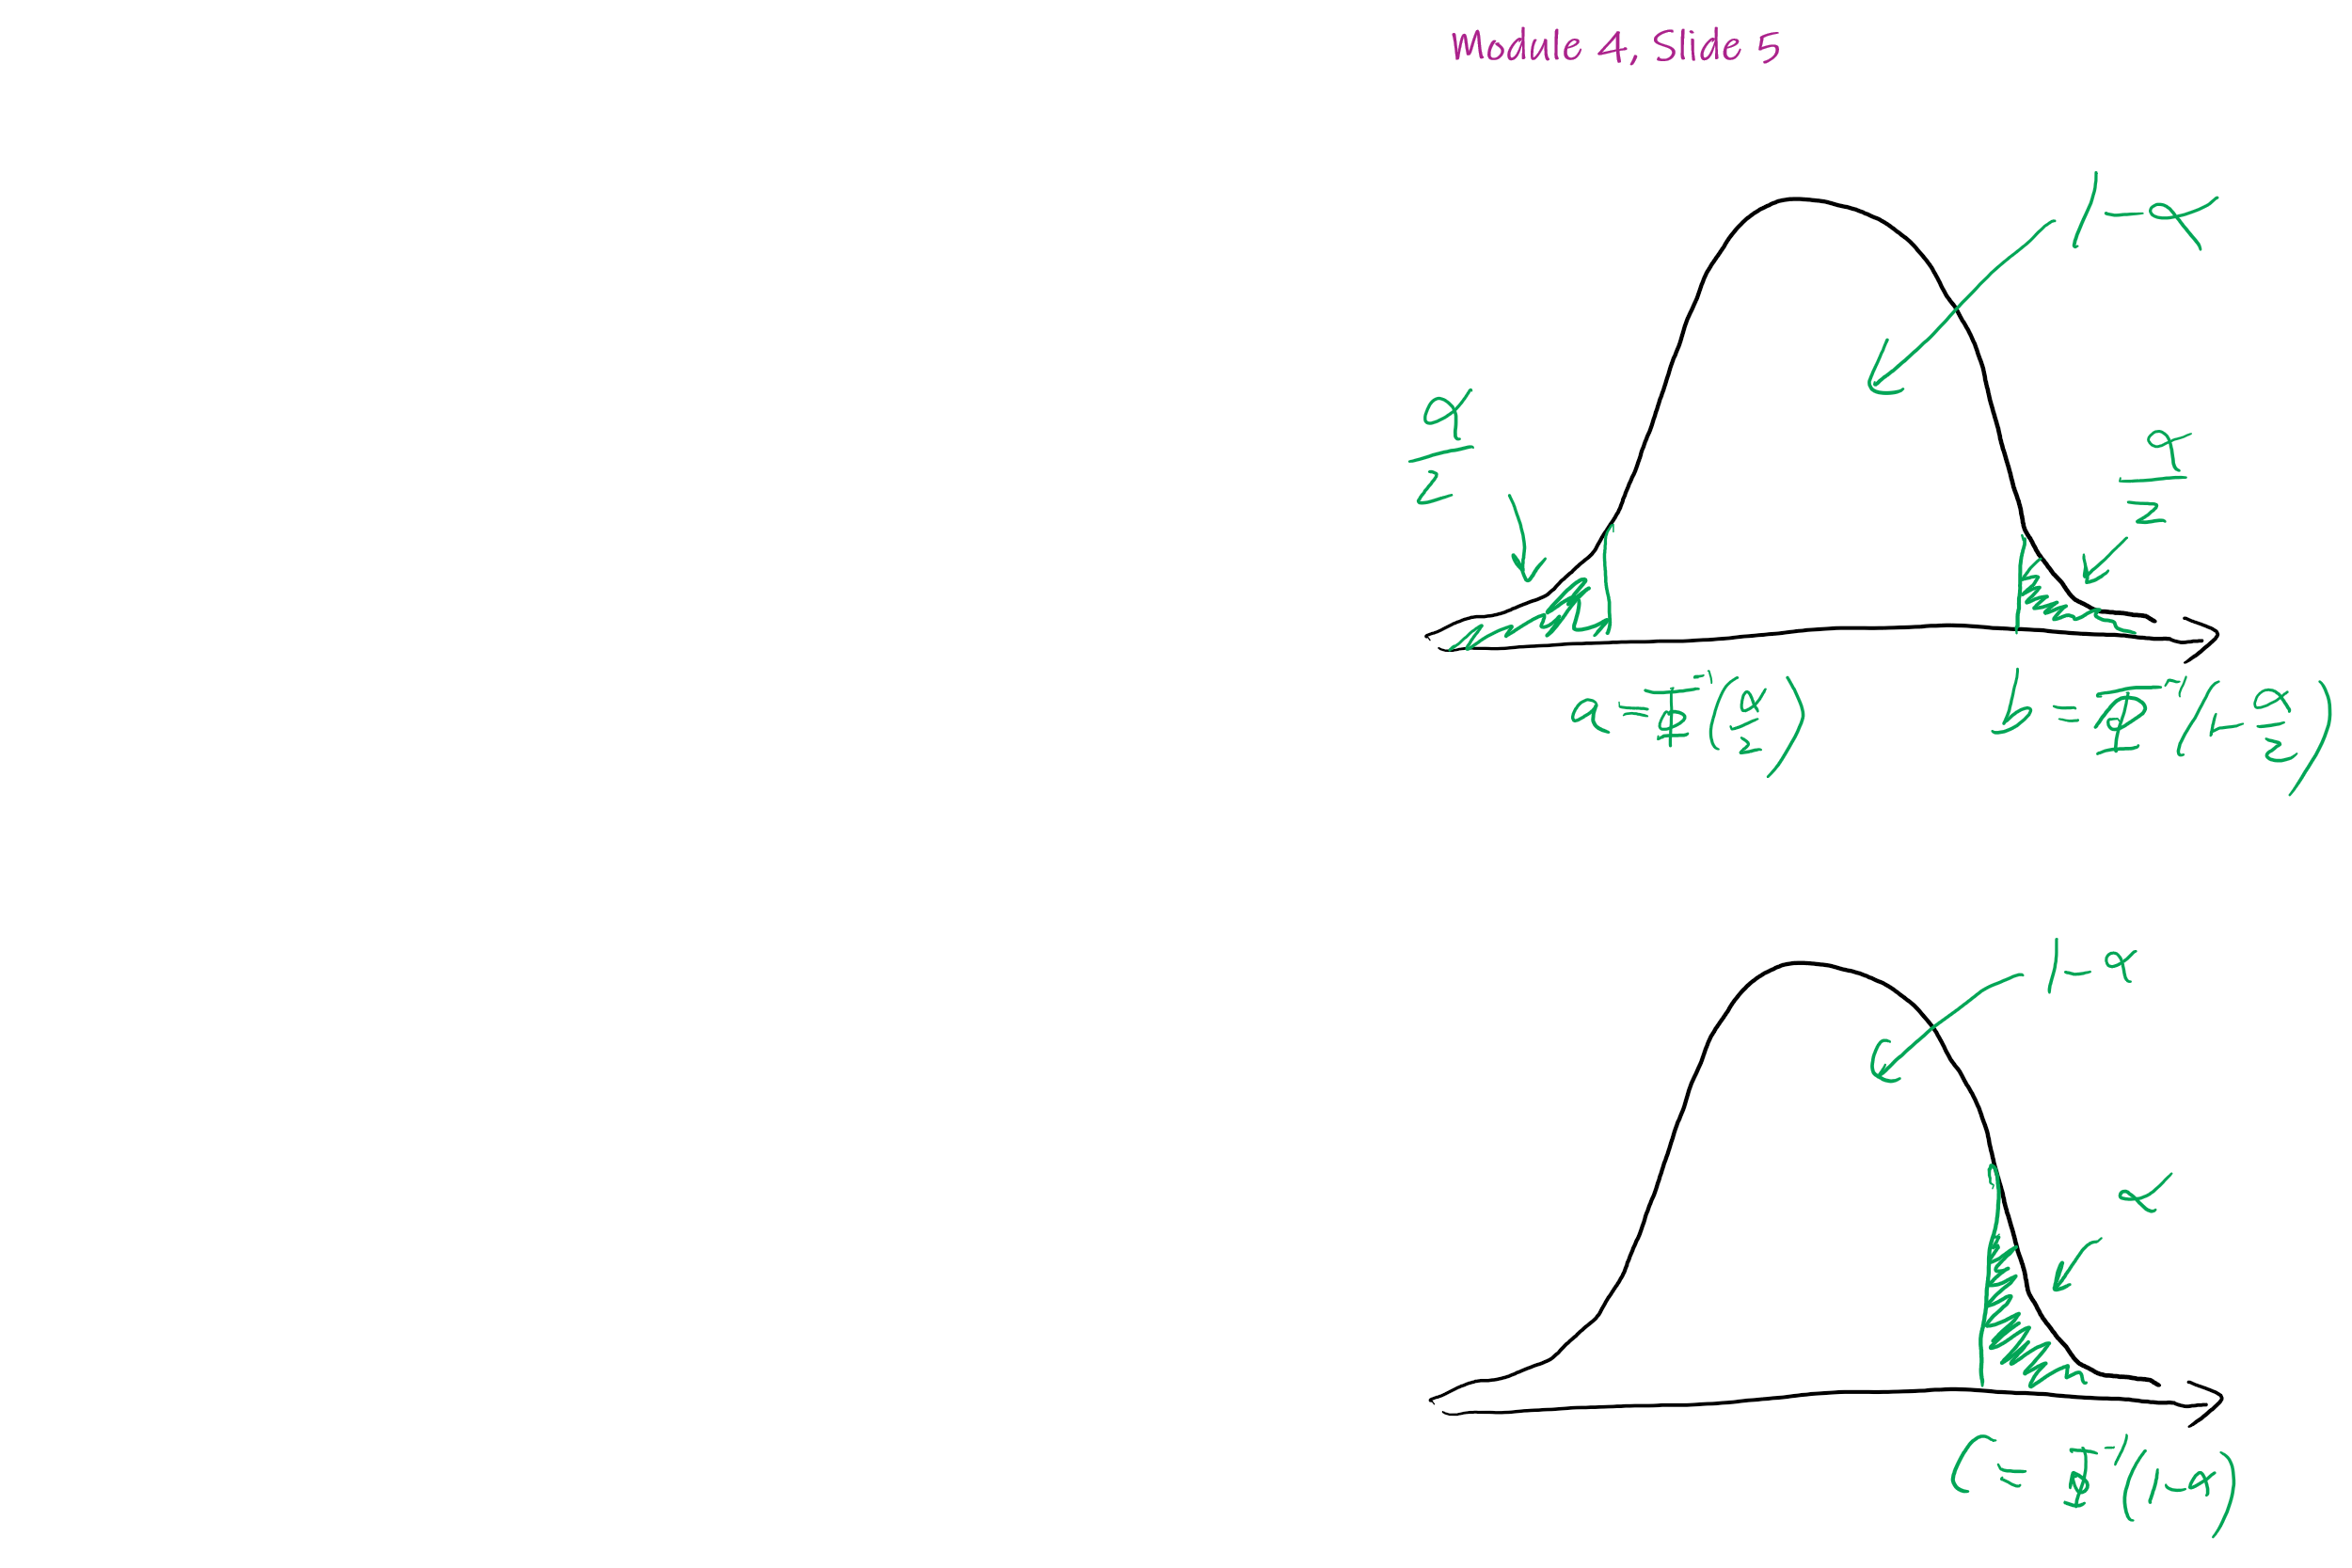 Module 4, Slide 5
1-α
α/2
α/2
a = Φ⁻¹(α/2)
b = Φ⁻¹(1-α/2)
1-α
α
C = Φ⁻¹(1-α)